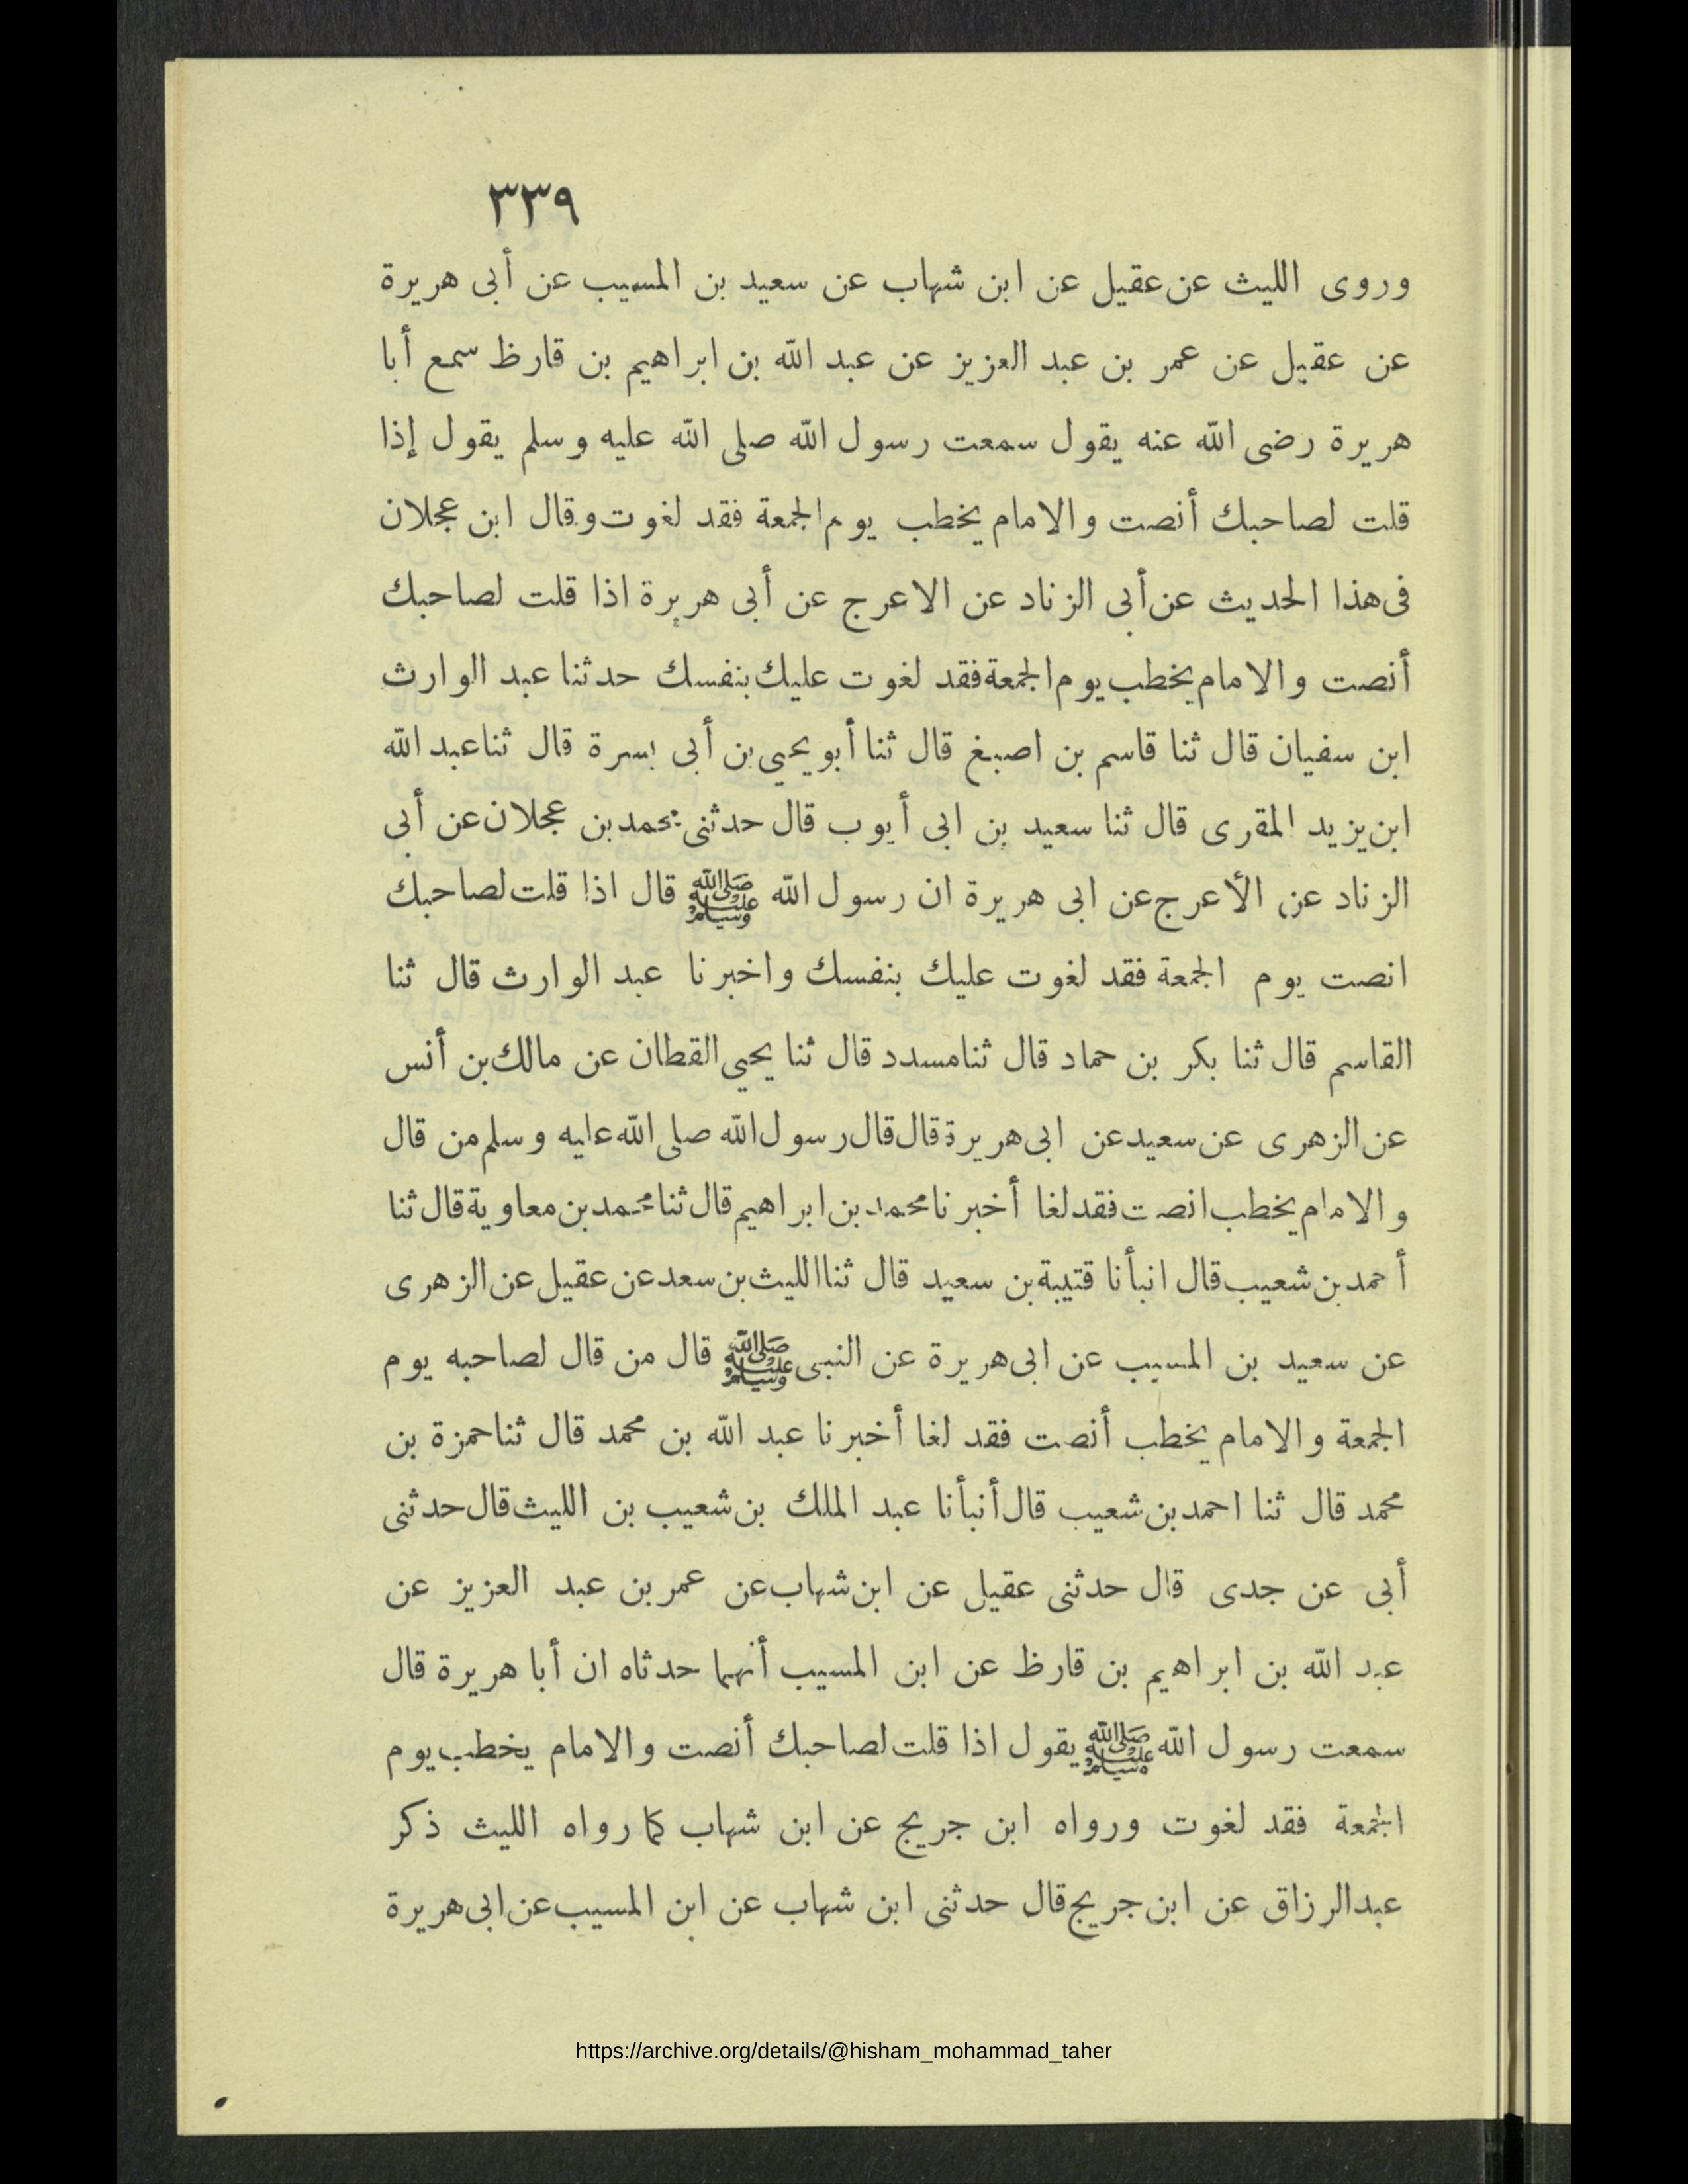 ٣٣٩
وروى الليث عن عقيل عن ابن شهاب عن سعيد بن المسيب عن أبى هريرة
عن عقيل عن عمر بن عبد العزيز عن عبد الله بن ابراهيم بن قارظ سمع أبا
هريرة رضى الله عنه يقول سمعت رسول الله صلى الله عليه وسلم يقول إذا
قلت لصاحبك أنصت والامام يخطب يوم الجمعة فقد لغوت وقال ابن عجلان
فى هذا الحديث عن أبى الزناد عن الاعرج عن أبى هريرة اذا قلت لصاحبك
أنصت والامام يخطب يوم الجمعة فقد لغوت عليك بنفسك حدثنا عبد الوارث
ابن سفيان قال ثنا قاسم بن اصبغ قال ثنا أبو يحيى بن أبى بسرة قال ثنا عبد الله
ابن يزيد المقرى قال ثنا سعيد بن ابى أيوب قال حدثنى محمد بن عجلان عن أبى
الزناد عن الأعرج عن ابى هريرة ان رسول الله ﷺ قال اذا قلت لصاحبك
انصت يوم الجمعة فقد لغوت عليك بنفسك واخبرنا عبد الوارث قال ثنا
القاسم قال ثنا بكر بن حماد قال ثنا مسدد قال ثنا يحيى القطان عن مالك بن أنس
عن الزهرى عن سعيد عن ابى هريرة قال قال رسول الله صلى الله عليه وسلم من قال
والامام يخطب انصت فقد لغا أخبرنا محمد بن ابراهيم قال ثنا محمد بن معاوية قال ثنا
أحمد بن شعيب قال انبأنا قتيبة بن سعيد قال ثنا الليث بن سعد عن عقيل عن الزهرى
عن سعيد بن المسيب عن ابى هريرة عن النبى ﷺ قال من قال لصاحبه يوم
الجمعة والامام يخطب أنصت فقد لغا أخبرنا عبد الله بن محمد قال ثنا حمزة بن
محمد قال ثنا احمد بن شعيب قال أنبأنا عبد الملك بن شعيب بن الليث قال حدثنى
أبى عن جدى قال حدثنى عقيل عن ابن شهاب عن عمر بن عبد العزيز عن
عبد الله بن ابراهيم بن قارظ عن ابن المسيب أنهما حدثاه ان أبا هريرة قال
سمعت رسول الله ﷺ يقول اذا قلت لصاحبك أنصت والامام يخطب يوم
الجمعة فقد لغوت ورواه ابن جريج عن ابن شهاب كما رواه الليث ذكر
عبد الرزاق عن ابن جريج قال حدثنى ابن شهاب عن ابن المسيب عن ابى هريرة
https://archive.org/details/@hisham_mohammad_taher